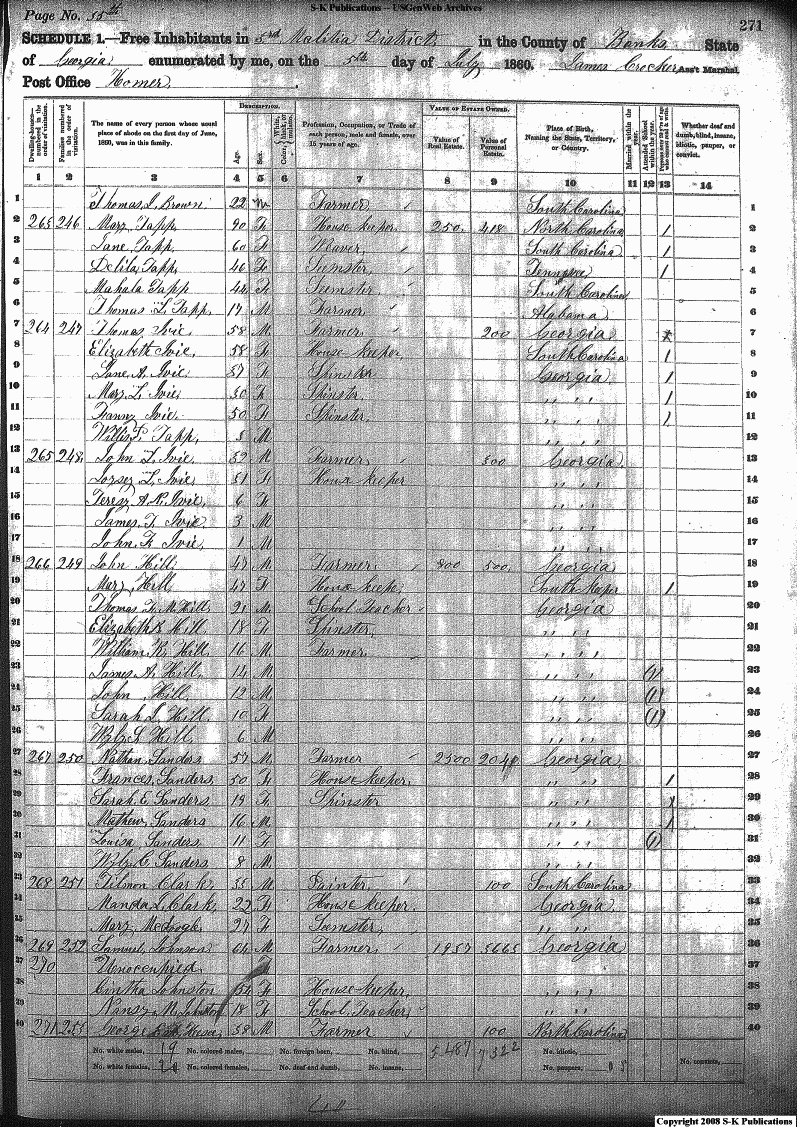 S-K Publications -- USGenWeb Archives
Page No. 55th
271
SCHEDULE 1.—Free Inhabitants in 5rd Malitia District in the County of Banks State
of Georgia enumerated by me, on the 5th day of July 1860. James Crocker, Ass't Marshal.
Post Office Homer
DESCRIPTION. VALUE OF ESTATE OWNED.
Dwelling-houses—numbered in the order of visitation. Families numbered in the order of visitation. The name of every person whose usual place of abode on the first day of June, 1860, was in this family. Age. Sex. Color, Profession, Occupation, or Trade of each person, male and female, over 15 years of age. Value of Real Estate. Value of Personal Estate. Place of Birth, Naming the State, Territory, or Country. Married within the year. Attended School within the year. Whether deaf and dumb, blind, insane, idiotic, pauper, or convict.
1 2 3 4 5 6 7 8 9 10 11 12 13 14
1 Thomas J. Brown 22 M Farmer South Carolina 1
2 265 246 Mary Tapp 90 F House keeper 250 418 North Carolina / 2
3 Jane Tapp 60 F Weaver South Carolina / 3
4 Delila Tapp 46 F Seemster Tennysee / 4
5 Mahala Tapp 44 F Seemster South Carolina 5
6 Thomas L. Tapp 17 M Farmer Alabama 6
7 264 247 Thomas Ivie 58 M Farmer 200 Georgia 7
8 Elizabeth Ivie 58 F House keeper South Carolina / 8
9 Jane A. Ivie 37 F Spinster Georgia / 9
10 Mary L. Ivie 30 F Spinster " " / 10
11 Fanny Ivie 50 F Spinster " " / 11
12 Tapp M " " 12
13 265 248 John L. Ivie 32 M Farmer 300 Georgia 13
14 L. Ivie 31 F House keeper " " 14
15 A. R. Ivie 6 F " " 15
16 James T. Ivie 3 M " " 16
17 John F. Ivie 1 M " " 17
18 266 249 John Hill 47 M Farmer 500 Georgia 18
19 Mary Hill 47 F House keeper South keeper / 19
20 Thomas F. M. Hill 21 M School Teacher Georgia 20
21 Elizabeth Hill 18 F Spinster " " 21
22 William R. Hill 16 M Farmer " " 22
23 James A. Hill 14 M " " (1) 23
24 John Hill 12 M " " (1) 24
25 Sarah J. Hill 10 F " " (1) 25
26 Hill 6 M " " 26
27 267 250 Nathan Sanders 57 M Farmer 2500 2040 Georgia 27
28 Frances Sanders 50 F House keeper " " / 28
29 Sarah E. Sanders 19 F Spinster " " 29
30 Mathew Sanders 16 M " " 30
31 Louisa Sanders 11 F " " (1) 31
32 C. Sanders 8 M " " 32
33 268 251 Tilmon Clark 35 M Painter 100 South Carolina 33
34 Manda L. Clark 22 F House keeper Georgia 34
35 Mary 27 F Seemster " " 35
36 269 252 Samuel Johnson 64 M Farmer 1957 5665 Georgia 36
37 270 Unoccupied 37
38 Cintha Johnston F House keeper " " 38
39 Nansy M. Johnston 18 F School Teacher " " 39
40 271 253 George 38 M Farmer 100 North Carolina 40
No. white males, 19 No. colored males, No. foreign born, No. blind, 5487 7322 No. idiotic,
No. white females, 20 No. colored females, No. deaf and dumb, No. insane, No. paupers, No. convicts,
Copyright 2008 S-K Publications